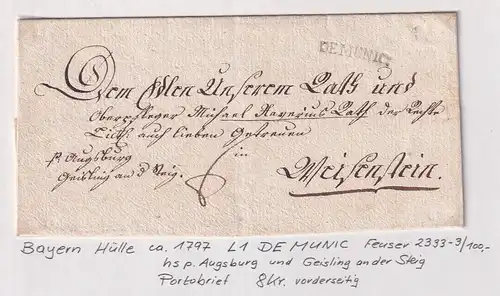 DE MUNIC
Dem Edlen Unserem Rath und
Oberpfleger Michael Xaverius Rath der Rechte
Licth. auch lieben Getreuen
in
p. Augsburg
Geisling an d Steig.
8
Weisenstein.
Bayern Hülle ca. 1797 L1 DE MUNIC Feuser 2333-3/100,-
hs p. Augsburg und Geisling an der Steig
Portobrief 8Kr. vorderseitig